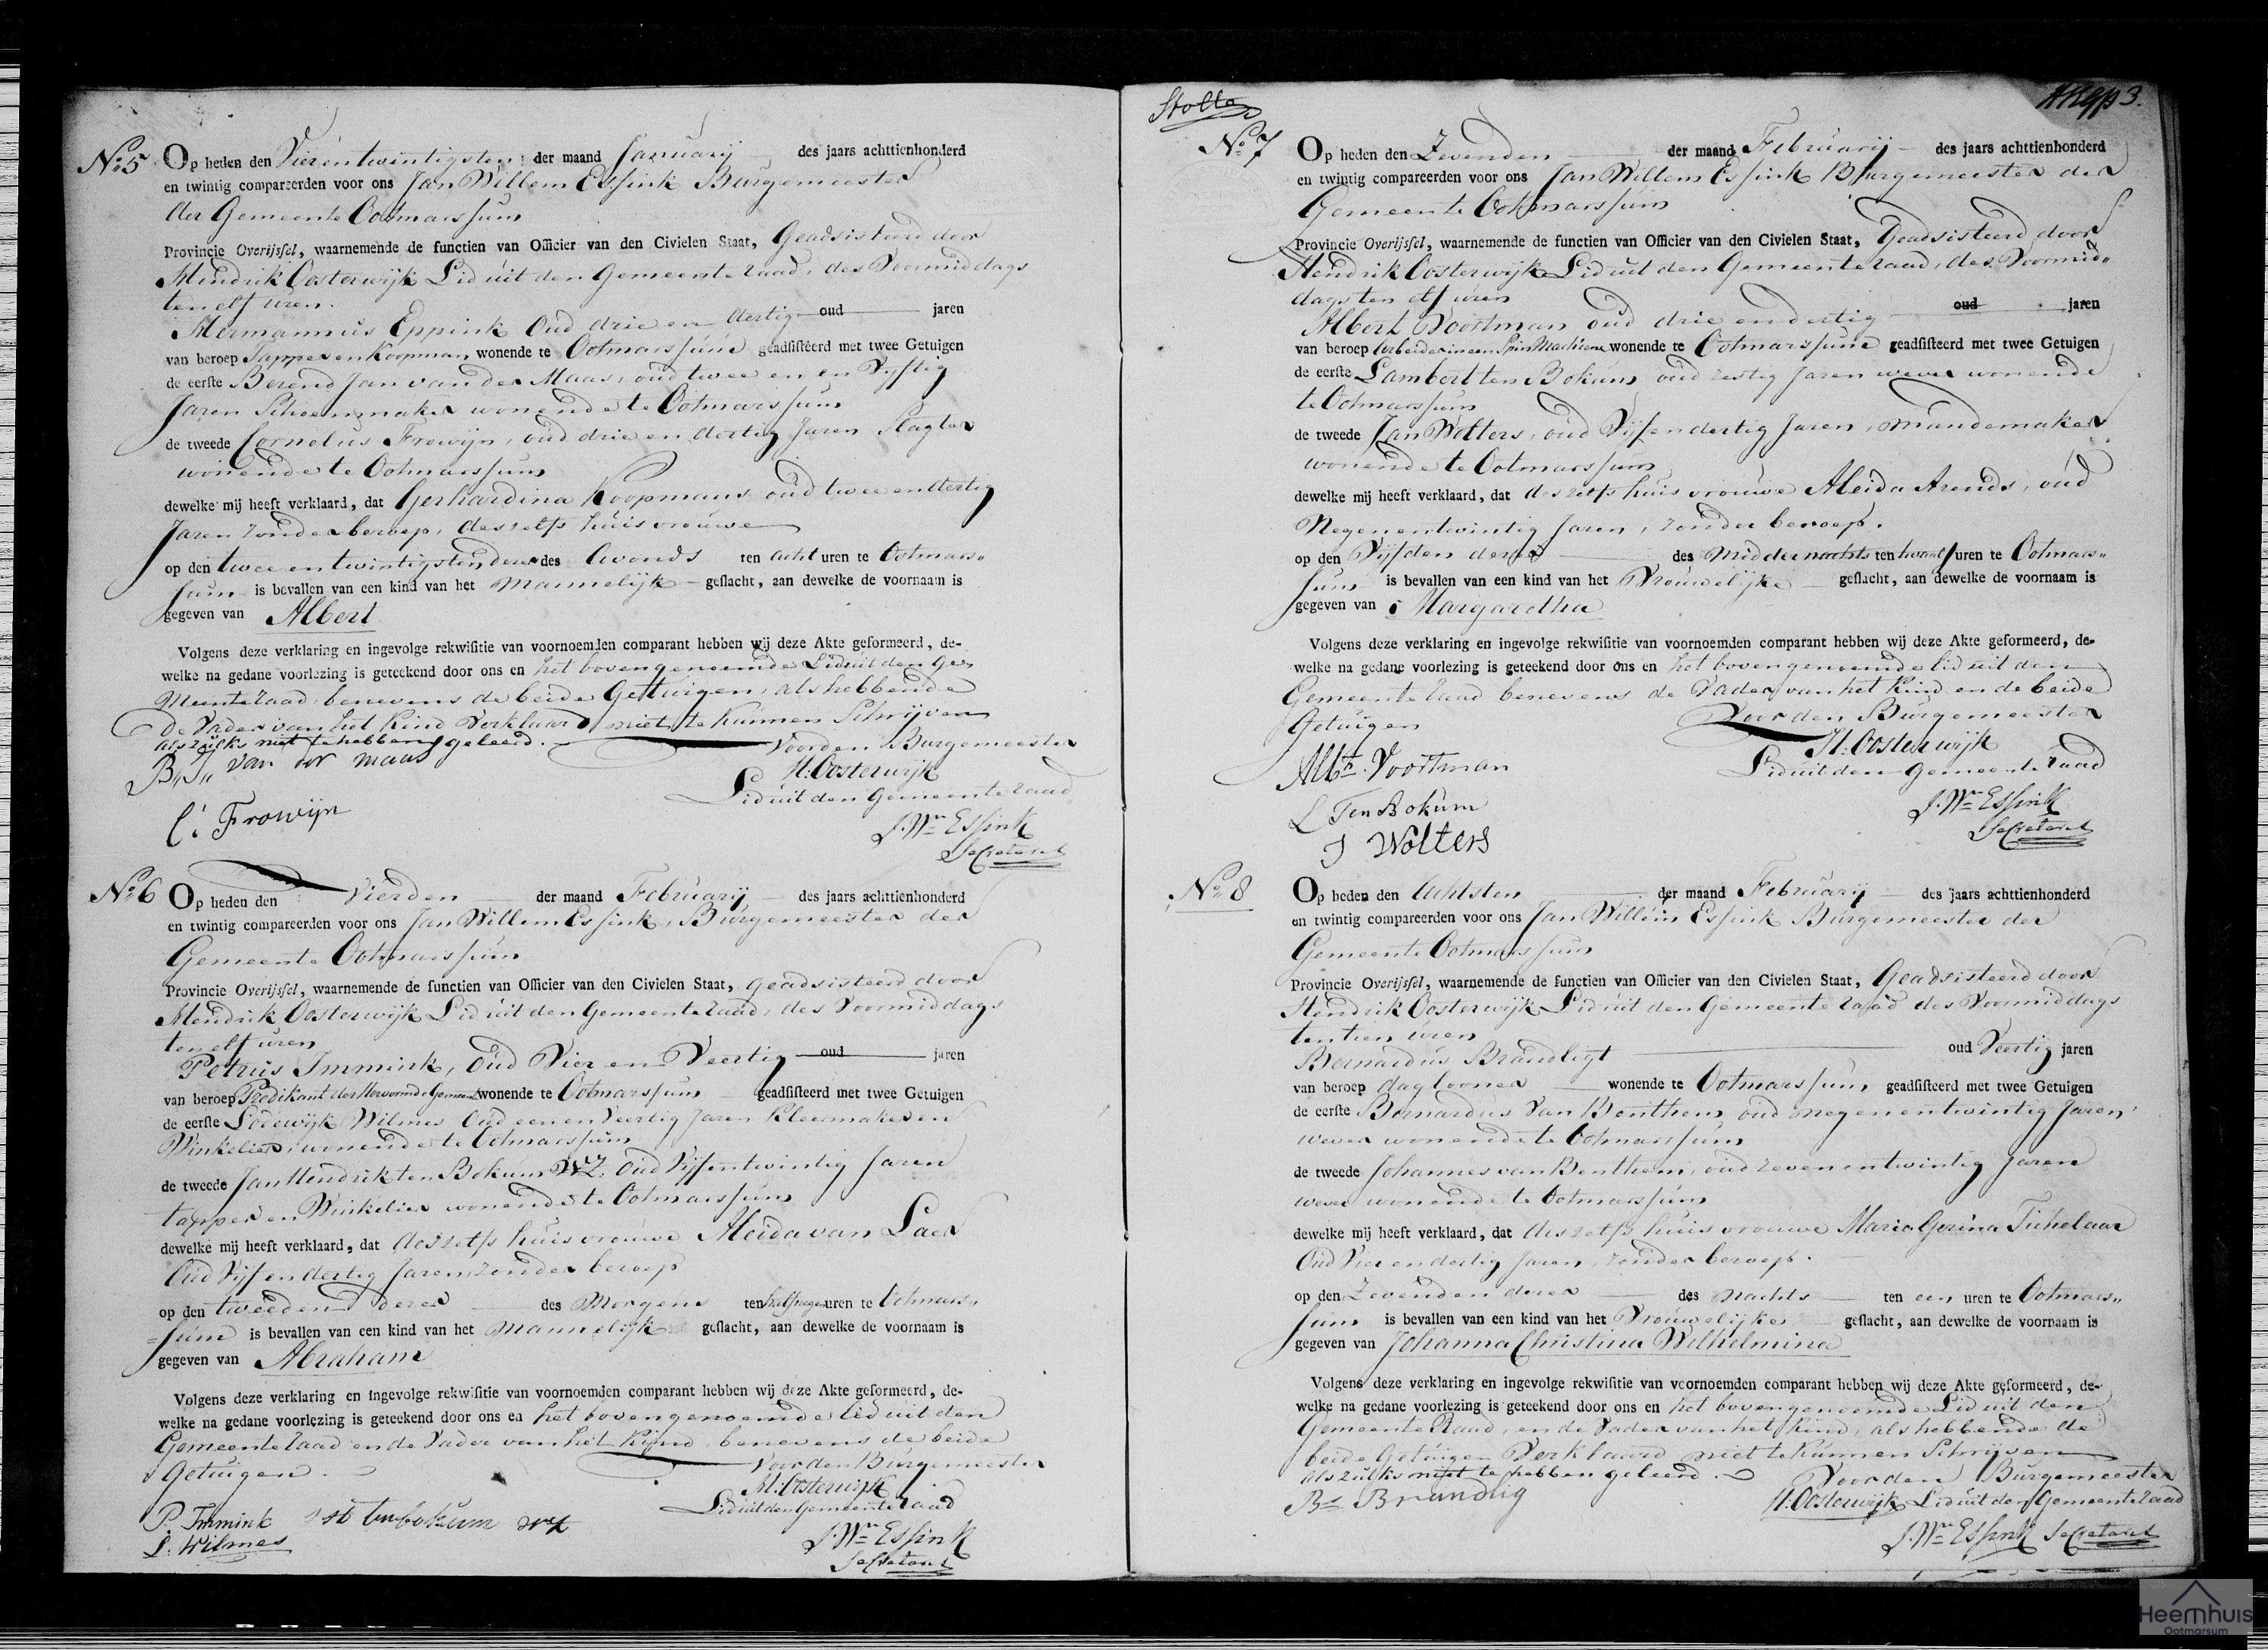 No 5 Op heden den Vierentwintigsten der maand Januarij des jaars achttienhonderd
en twintig compareerden voor ons Jan Willem Essink Burgemeester
der Gemeente Ootmarssum
Provincie Overijssel, waarnemende de functien van Officier van den Civielen Staat, Geadsisteerd door
Hendrik Oosterwijk Lid uit den Gemeente raad, des Voormiddags
ten elf uren.
Hermannus Eppink Oud drie en dertig oud jaren
van beroep Tapper en Koopman wonende te Ootmarssum geadsisteerd met twee Getuigen
de eerste Berend Jan van der Maas, oud twee en en Vijftig
Jaren Schoenmaker wonende te Ootmarssum
de tweede Cornelius Frowijn, oud drie en dertig Jaren Slagter
wonende te Ootmarssum
dewelke mij heeft verklaard, dat Gerhardina Koopmans oud twee en dertig
Jaren zonder beroep, deszelfs huisvrouwe
op den twee en twintigsten dezer des Avonds ten acht uren te Ootmars„
sum is bevallen van een kind van het Mannelijk geslacht, aan dewelke de voornaam is
gegeven van Albert
Volgens deze verklaring en ingevolge rekwisitie van voornoemden comparant hebben wij deze Akte geformeerd, de-
welke na gedane voorlezing is geteekend door ons en het bovengenoemde Lid uit den Ge„
meente raad, benevens de beide Getuigen, als hebbende
de Vader van het Kind Verklaard niet te Kunnen Schrijven
als zulks niet te hebben geleerd.
Voor den Burgemeester
B. J. van der maas
H: Oosterwijk
Lid uit den Gemeente raad
C: Frowijn
J. Wm Essink
Secretaris
No 6 Op heden den Vierden der maand Februarij des jaars achttienhonderd
en twintig compareerden voor ons Jan Willem Essink, Burgemeester der
Gemeente Ootmarssum
Provincie Overijssel, waarnemende de functien van Officier van den Civielen Staat, Geadsisteerd door
Hendrik Oosterwijk Lid uit den Gemeente raad, des Voormiddags
ten elf uren
Petrus Immink, Oud Vier en Veertig oud jaren
van beroep Predikant der Hervormde Gemeent wonende te Ootmarssum geadsisteerd met twee Getuigen
de eerste Lodewijk Wilmes, Oud een en Veertig Jaren Kleermaker en
Winkelier, wonende te Ootmarssum
de tweede Jan Hendrik ten Bokum WZ. Oud Vijfentwintig Jaren
tapper en Winkelier wonende te Ootmarssum
dewelke mij heeft verklaard, dat deszelfs huisvrouwe Aleida van Laer
Oud Vijf en dertig Jaren, zonder beroep
op den tweeden dezer des Morgens ten half negen uren te Ootmars„
=sum is bevallen van een kind van het Mannelijk geslacht, aan dewelke de voornaam is
gegeven van Abraham
Volgens deze verklaring en ingevolge rekwisitie van voornoemden comparant hebben wij deze Akte geformeerd, de-
welke na gedane voorlezing is geteekend door ons en het bovengenoemde lid uit den
Gemeente raad en de Vader van het Kind benevens de beide
Getuigen.
Voor den Burgemeester
H: Oosterwijk
Lid uit den Gemeente raad
P. Immink
L. Wilmes
J. Wm Essink
Secretaris
Stolte
3.
No 7 Op heden den Zevenden der maand Februarij des jaars achttienhonderd
en twintig compareerden voor ons Jan Willem Essink Burgemeester der
Gemeente Ootmarssum
Provincie Overijssel, waarnemende de functien van Officier van den Civielen Staat, Geadsisteerd door
Hendrik Oosterwijk Lid uit den Gemeente raad, des Voormid„
dags ten elf uren
Albert Voortman oud drie en dertig oud jaren
van beroep Arbeider in een Spin Machiene wonende te Ootmarssum geadsisteerd met twee Getuigen
de eerste Lambert ten Bokum oud zestig Jaren wever wonende
te Ootmarssum
de tweede Jan Wolters, oud Vijfendertig Jaren, mandemaker
wonende te Ootmarssum
dewelke mij heeft verklaard, dat deszelfs huisvrouwe Aleida Arends, oud
Negenentwintig Jaren, zonder beroep.
op den Vijfden dezer des Middernachts ten twaalf uren te Ootmars„
sum is bevallen van een kind van het Vrouwelijke geslacht, aan dewelke de voornaam is
gegeven van Margaretha
Volgens deze verklaring en ingevolge rekwisitie van voornoemden comparant hebben wij deze Akte geformeerd, de-
welke na gedane voorlezing is geteekend door ons en het bovengenoemde lid uit den
Gemeente raad benevens de Vader van het Kind en de beide
Getuigen
Voor den Burgemeester
H: Oosterwijk
Lid uit den Gemeente raad
Albt. Voortman
L Ten Bokum
J Wolters
J. Wm Essink
Secretaris
No 8 Op heden den Achtsten der maand Februarij des jaars achttienhonderd
en twintig compareerden voor ons Jan Willem Essink Burgemeester der
Gemeente Ootmarssum
Provincie Overijssel, waarnemende de functien van Officier van den Civielen Staat, Geadsisteerd door
Hendrik Oosterwijk Lid uit den Gemeente raad des Voormiddags
ten tien uren
Bernardus Brandligt oud Veertig jaren
van beroep daglooner wonende te Ootmarssum geadsisteerd met twee Getuigen
de eerste Bernardus Van Benthem, oud negenentwintig Jaren
wever wonende te Ootmarssum
de tweede Johannes van Benthem, oud zevenentwintig Jaren
wever wonende te Ootmarssum
dewelke mij heeft verklaard, dat deszelfs huisvrouwe Maria Gesina Tichelaar
Oud Vier en dertig Jaren, zonder beroep.
op den Zevenden dezer des Nachts ten een uren te Ootmars„
sum is bevallen van een kind van het Vrouwelijke geslacht, aan dewelke de voornaam is
gegeven van Johanna Christina Wilhelmina
Volgens deze verklaring en ingevolge rekwisitie van voornoemden comparant hebben wij deze Akte geformeerd, de-
welke na gedane voorlezing is geteekend door ons en het bovengenoemde Lid uit den
Gemeente Raad, en de Vader van het Kind, als hebbende de
beide Getuigen Verklaard niet te Kunnen Schrijven
als zulks niet te hebben geleerd.
Voor den Burgemeester
H: Oosterwijk Lid uit den Gemeente raad
J. Wm Essink Secretaris
Heemhuis
Ootmarsum